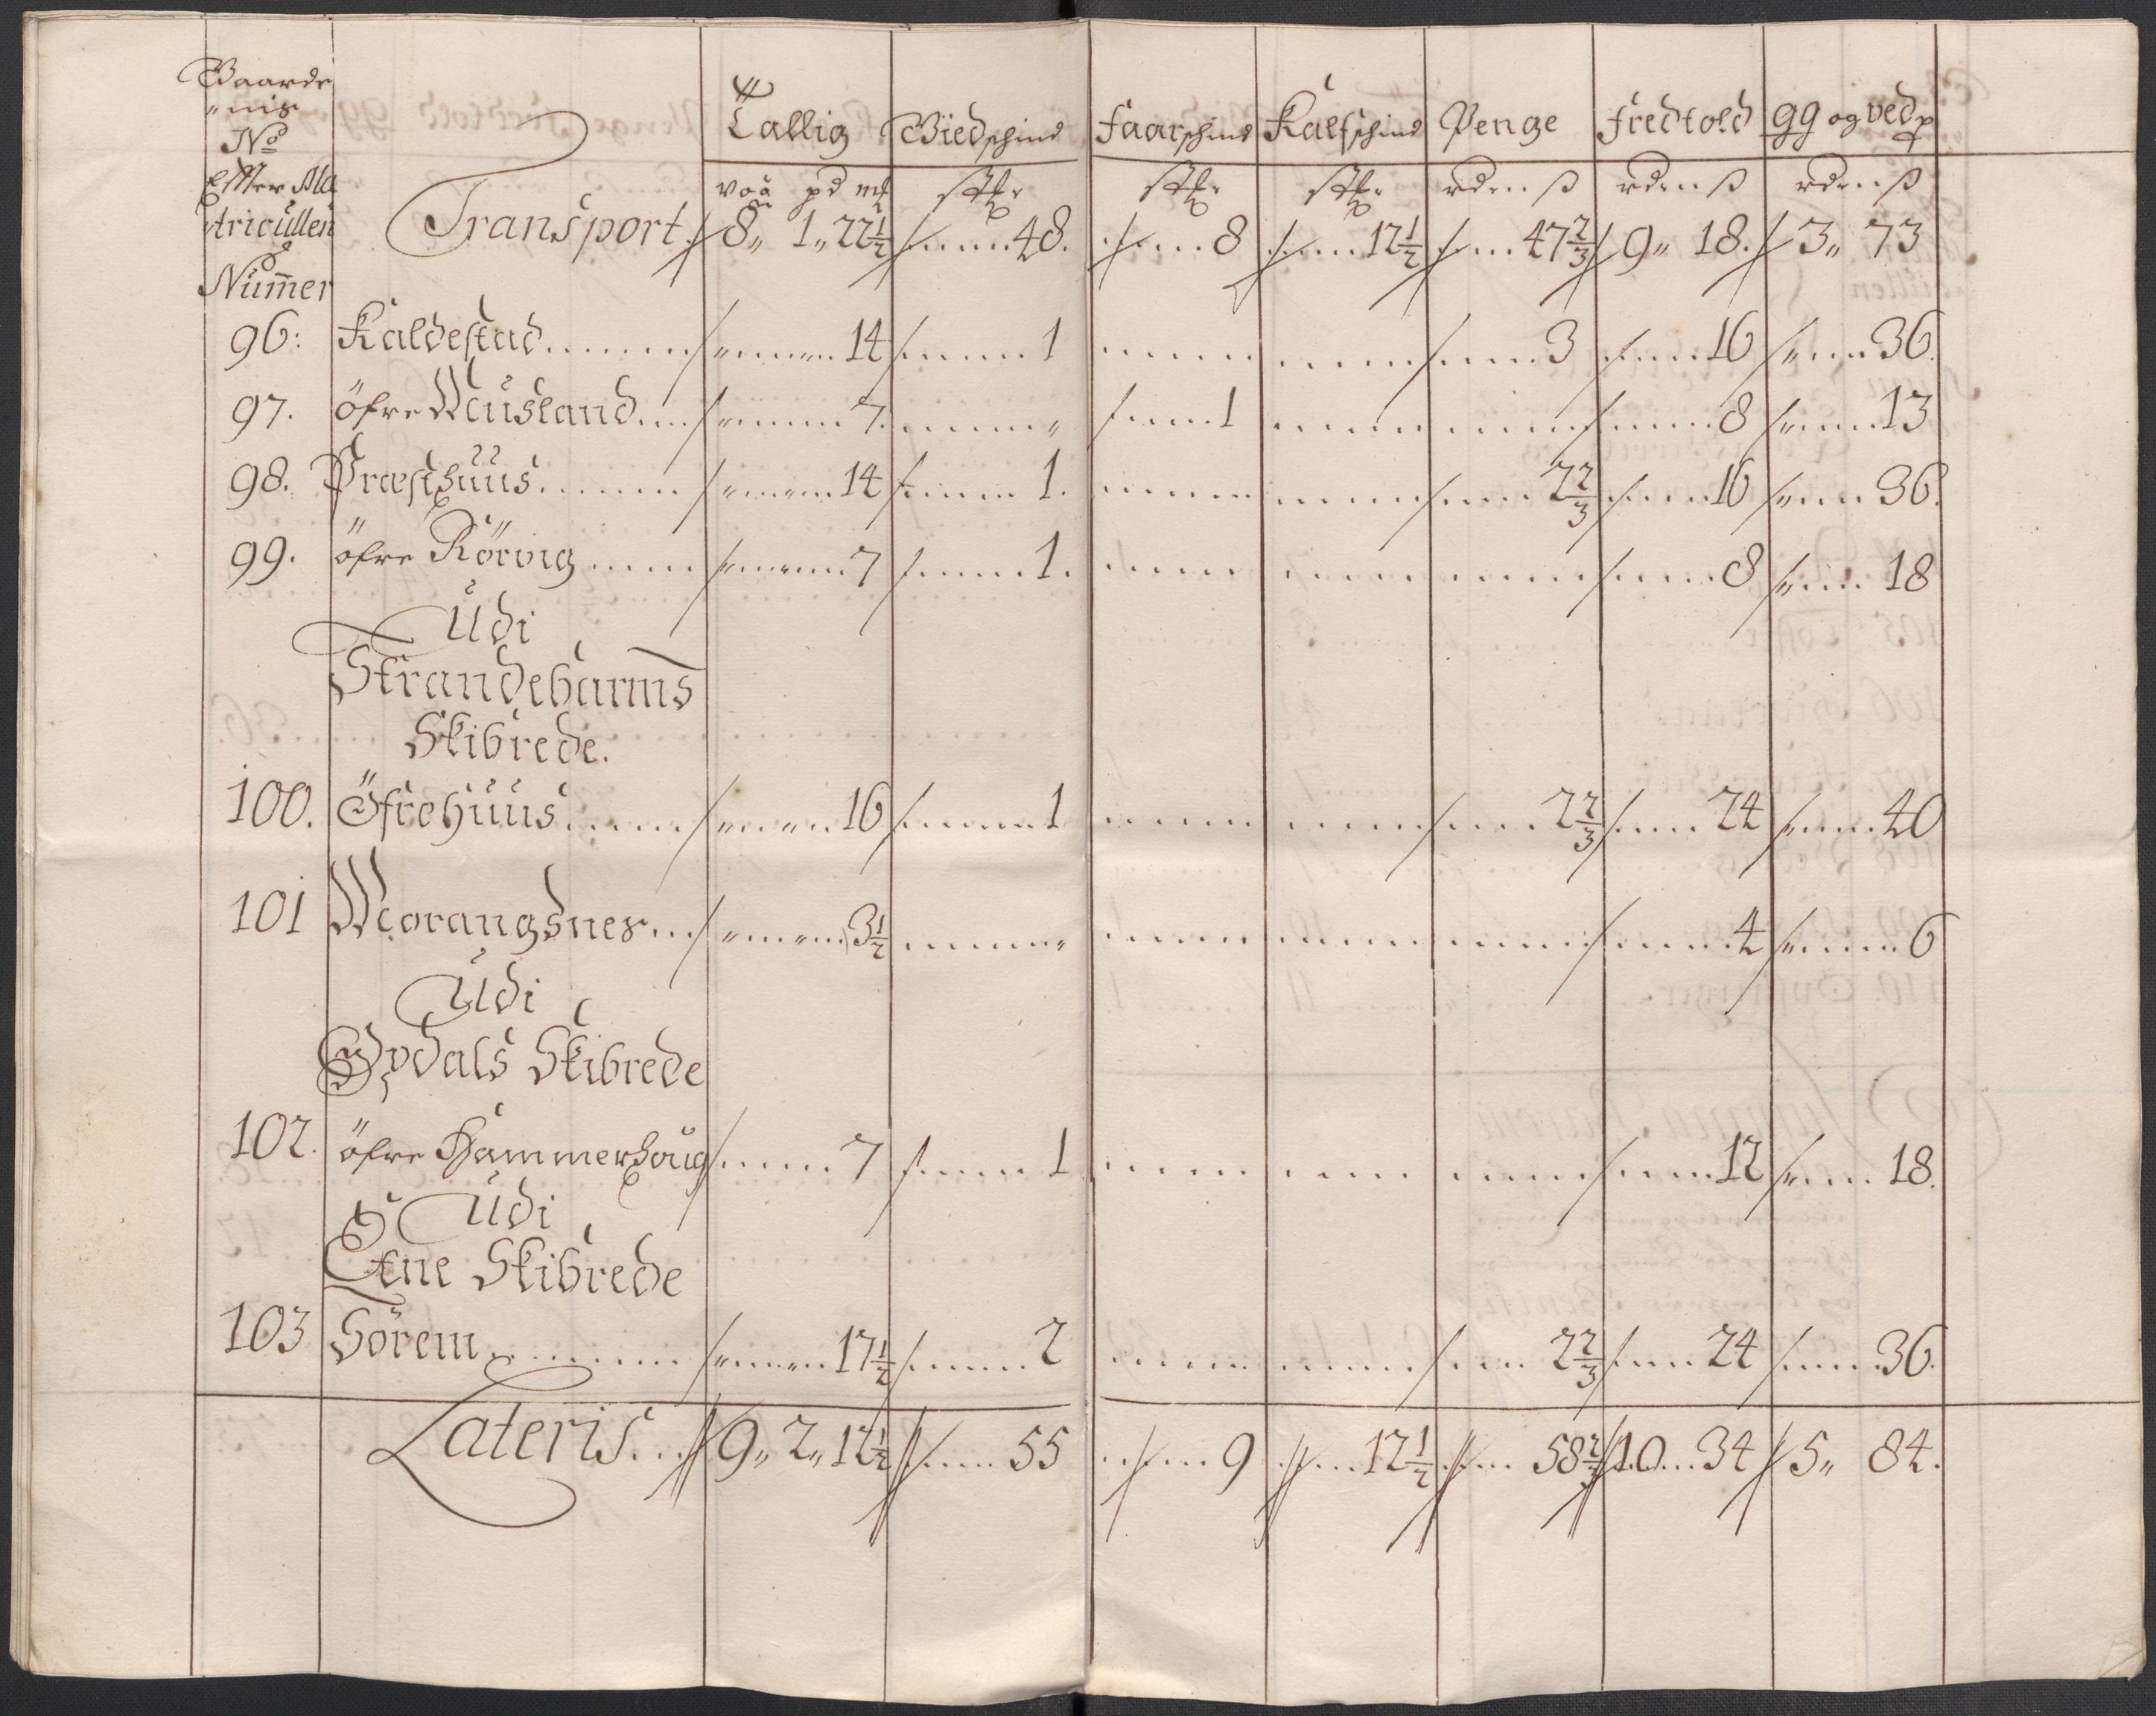 Gaarde
"nis
No
Effter Ma
tricullen
Nummer
Tallig Giedschind Faarschind Kalfschind Penge Fredtold gg og ved p
voä pd mk stkr stkr stkr rd ß rd ß rd ß
Transport 8„ 1„ 22½ 48. 8 12½ 47⅔ 9„ 18. 3„ 73
96: Kaldestad 14 1 3 16 36.
97. öfre Musland 7. 1 8 13
98. Præsthuus 14 1. 2⅔ 16 36.
99. öfre Rörvig 7 1. 8 18
Udi
Strandebarms
Skibrede.
100. Öfrehuus 16 1 2⅔ 24 40
101 Morangsnes 3½ 4 6
Udi
Opdals Skibrede
102. öfre Hammerhoug 7 1 12 18.
Udi
Etne Skibrede
103 Sörem 17½ 2 2⅔ 24 36.
Lateris 9„ 2„ 12½ 55 9 12½ 58⅔ 10 34 5„ 84.